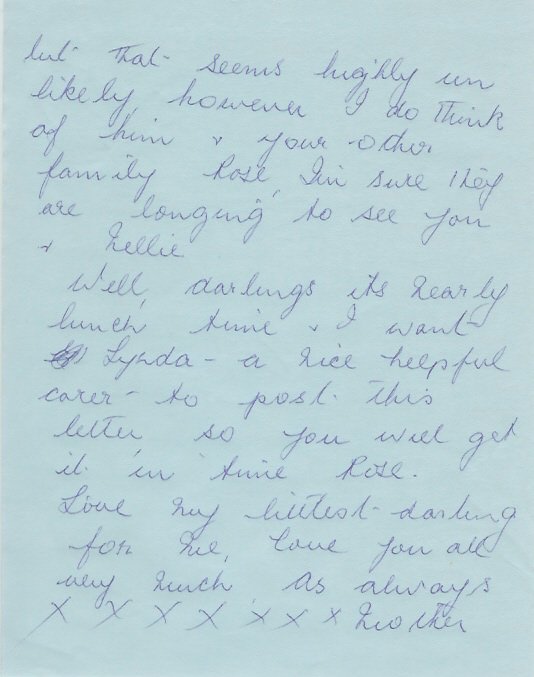 but that seems highly un
likely however I do think
of him & your other
family Rose, I'm sure they
are longing to see you
& Nellie
Well, darlings its nearly
lunch time & I want
Lynda - a nice helpful
carer - to post this
letter so you will get
it in time Rose.
Love my littlest darling
for me, love you all
very much, as always
X X X X X X X Mother